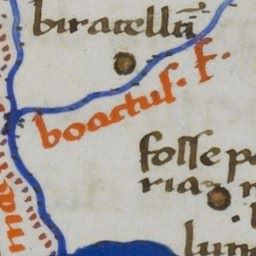 biracelli
boactus. f.
fosse pa
riaz
lun